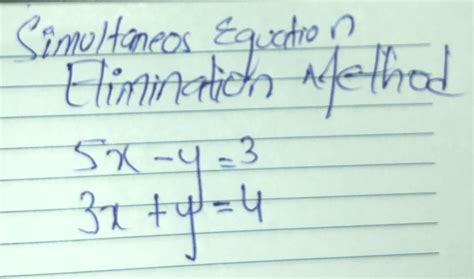 Simultaneos Equation
Elimination Method
5x - y = 3
3x + y = 4